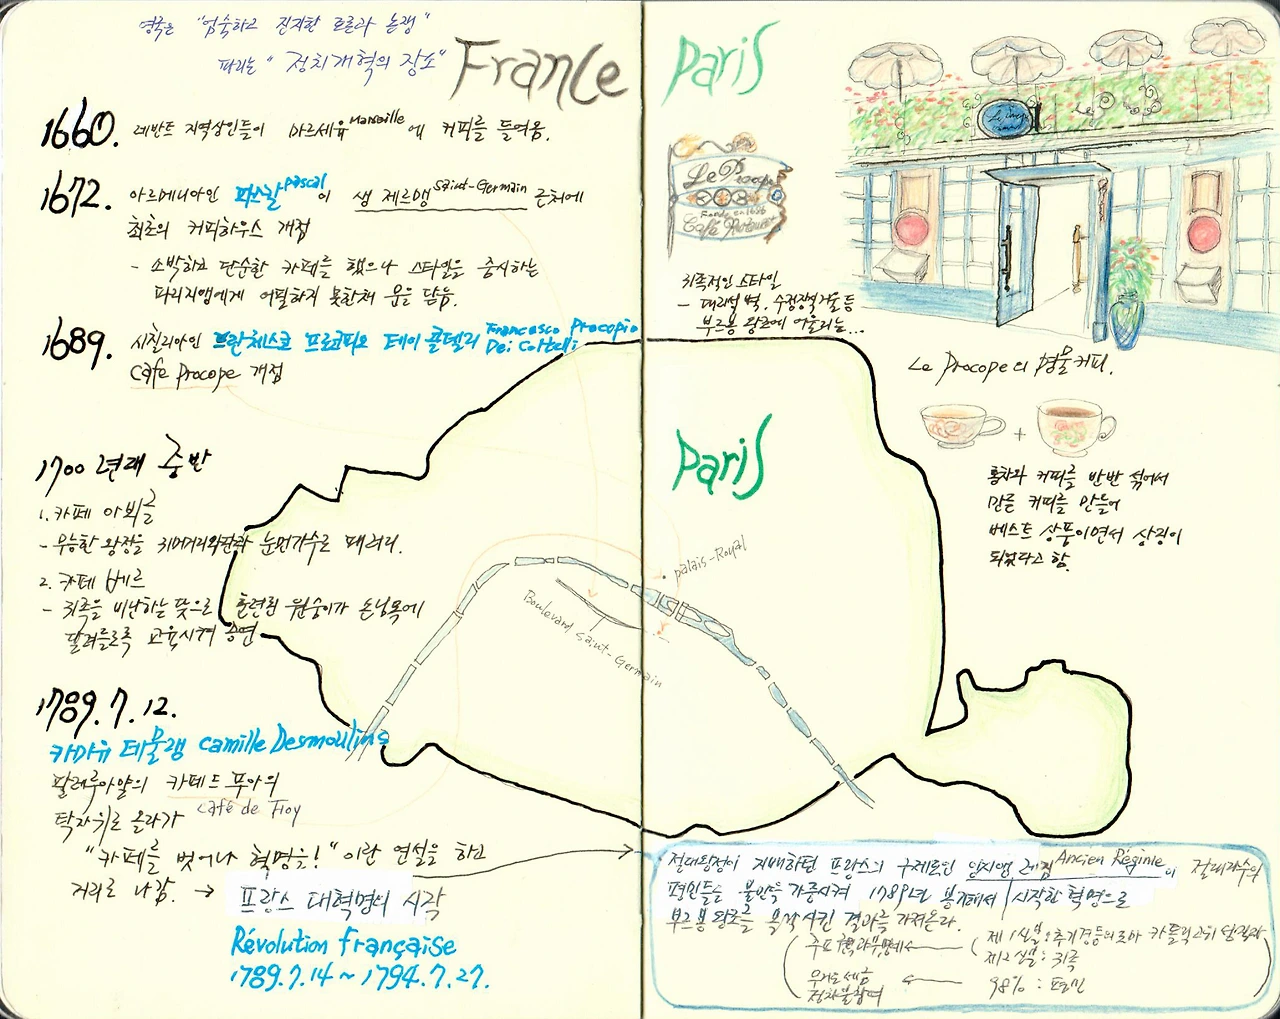 영국은 "엄숙하고 진지한 토론과 논쟁"
파리는 "정치개혁의 장소"
France
Paris
1660. 레반트 지역상인들이 마르세유 Marseille 에 커피를 들여옴.
1672. 아르메니아인 파스칼 Pascal 이 생 제르맹 Saint-Germain 근처에
최초의 커피하우스 개점
- 소박하고 단순한 카페를 했으나 스타일을 중시하는
파리지앵에게 어필하지 못한채 문을 닫음.
1689. 시칠리아인 프란체스코 프로코피오 데이 콜델리 Francesco Procopio
Dei Coltelli
Cafe Procope 개점
Le Procope
Fondé en 1686
Café Restaurant
귀족적인 스타일
- 대리석 벽, 수정장식 거울 등
부르봉 왕조에 어울리는...
Le Procope의 명물커피.
+
홍차와 커피를 반반 섞어서
만든 커피를 만들어
베스트 상품이면서 상징이
되었다고 함.
1700년대 중반
1. 카페 아뵈글
- 무능한 왕정을 귀머거리악단과 눈먼가수로 패러디.
2. 카페 베르
- 귀족을 비난하는 뜻으로 훈련된 원숭이가 손님목에
달려들도록 교육시켜 공연
Paris
palais-Royal
Boulevard Saint-Germain
1789.7.12.
카미유 데물랭 Camille Desmoulins
팔레루아얄의 카페드 푸아의
café de Floy
탁자위로 올라가
"카페를 벗어나 혁명을!" 이란 연설을 하고
거리로 나감. → 프랑스 대혁명의 시작
Révolution française
1789.7.14 ~ 1794.7.27.
절대왕정이 지배하던 프랑스의 구제도인 앙시앵 레짐 Ancien Régime 이 절대다수의
평민들의 불만을 가중시켜 1789년 봉기해서 시작한 혁명으로
부르봉 왕조를 몰락시킨 결과를 가져온다.
제1신분: 추기경등의 로마 카톨릭 고위 성직자
제2신분: 귀족
무거운 세금
정치불참여
98% : 평민